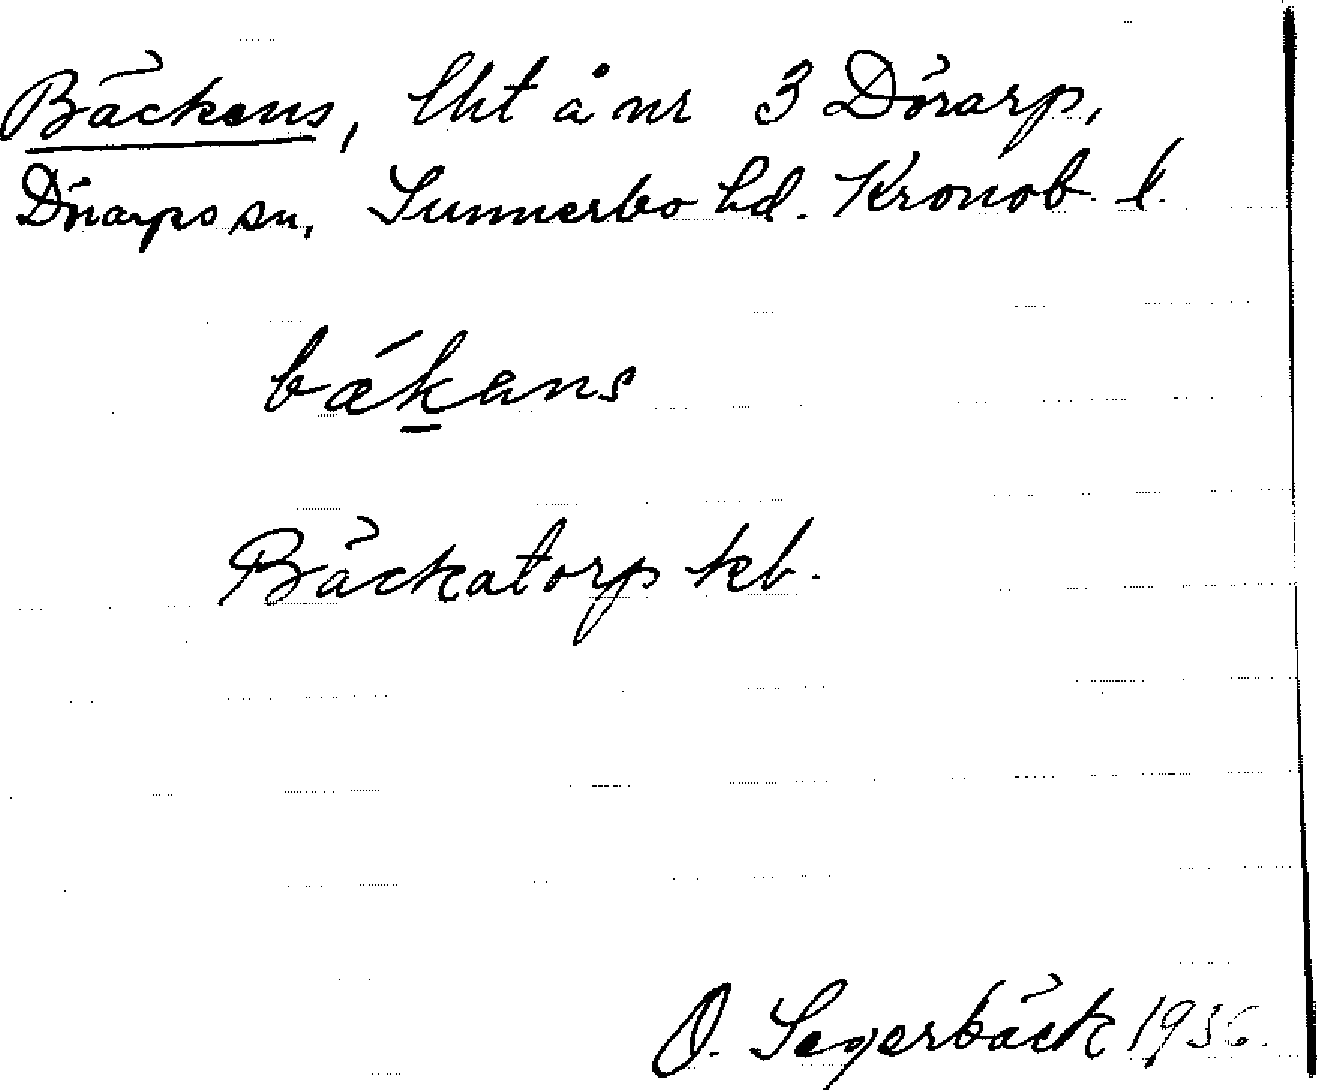 Bäckens, lht å nr 3 Dörarp,
Dörarps sn, Sunnerbo hd. Kronob. l.
bǽkans
Bäckatorp kb.
O. Segerbäck 1936.